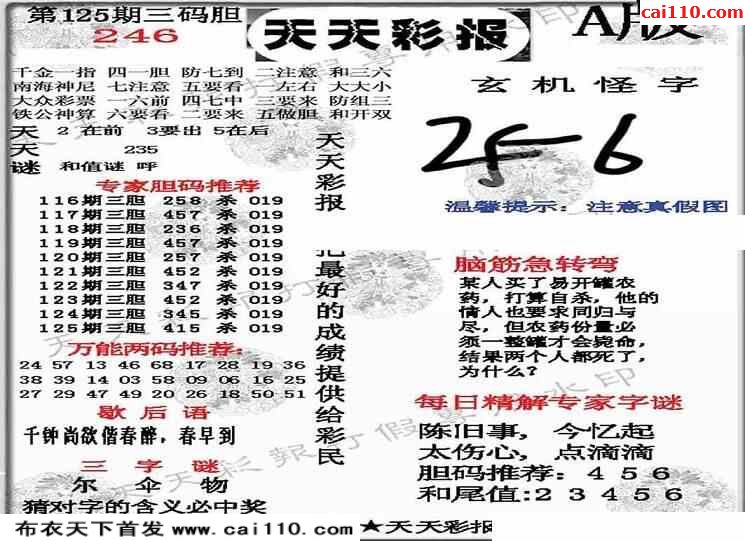 第125期三码胆
246
天天彩报
A版
cai110.com
千金一指 四一胆 防七到 二注意 和三六
南海神尼 七注意 五要看 一左右 大大小
大众彩票 一六前 四七中 三要来 防组三
铁公神算 六要看 二要来 五做胆 和开双
天 2 在前 3要出 5在后
天 235
谜 和值谜 呼
专家胆码推荐
116期三胆 258 杀 019
117期三胆 457 杀 019
118期三胆 236 杀 019
119期三胆 457 杀 019
120期三胆 257 杀 019
121期三胆 452 杀 019
122期三胆 347 杀 019
123期三胆 452 杀 019
124期三胆 345 杀 019
125期三胆 415 杀 019
万能两码推荐:
24 57 13 46 68 17 28 19 36
38 39 14 03 58 09 06 16 25
27 29 47 49 20 26 18 50 51
歇后语
千钟尚欲偕春醉，春早到
三字谜
尔 伞 物
猜对字的含义必中奖
天天彩报
把最好的成绩提供给彩民
玄机怪字
256
温馨提示: 注意真假图
脑筋急转弯
某人买了易开罐农
药，打算自杀，他的
情人也要求同归与
尽，但农药份量必
须一整罐才会毙命，
结果两个人都死了，
为什么？
每日精解专家字谜
陈旧事，今忆起
太伤心，点滴滴
胆码推荐: 4 5 6
和尾值:2 3 4 5 6
布衣天下首发 www.cai110.com
★天天彩报